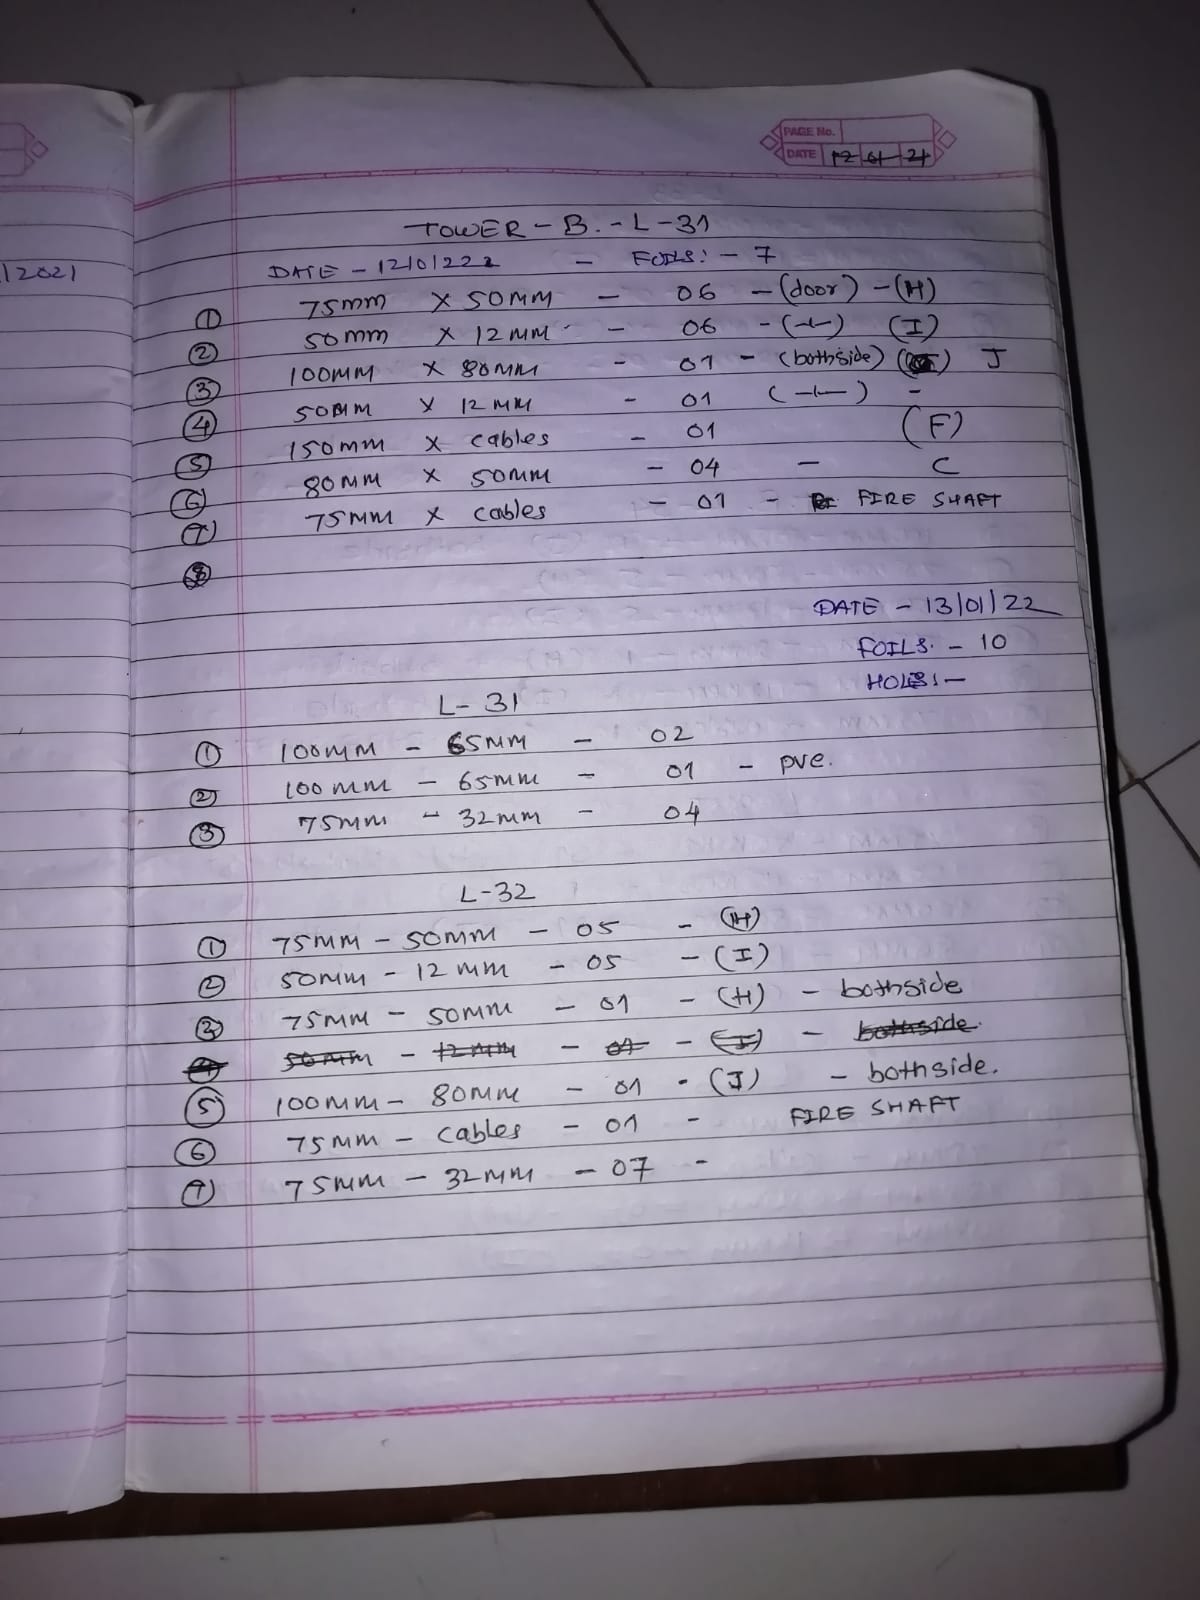 PAGE No.
DATE 12 01 21
/2021
TOWER - B. - L - 31
DATE - 12/01/222 - FOILS: - 7
① 75mm X 50MM - 06 - (door) - (H)
② 50mm X 12MM - 06 - (-ı-) (I)
③ 100MM X 80MM - 01 - (bothside) J
④ 50MM X 12MM - 01 (-ı-) -
⑤ 150mm X cables - 01 (F)
⑥ 80MM X 50MM - 04 - C
⑦ 75MM X cables - 01 - FIRE SHAFT
⑧
DATE - 13/01/22
FOILS. - 10
HOLES: -
L - 31
① 100MM - 65MM - 02
② 100MM - 65MM - 01 - pve.
③ 75MM - 32MM - 04
L-32
① 75MM - 50MM - 05 - (H)
② 50MM - 12MM - 05 - (I)
③ 75MM - 50MM - 01 - (H) - bothside
④ 50MM - 12MM - 01 - (I) - bothside.
⑤ 100MM - 80MM - 01 - (J) - bothside.
⑥ 75MM - cables - 01 - FIRE SHAFT
⑦ 75MM - 32MM - 07 -